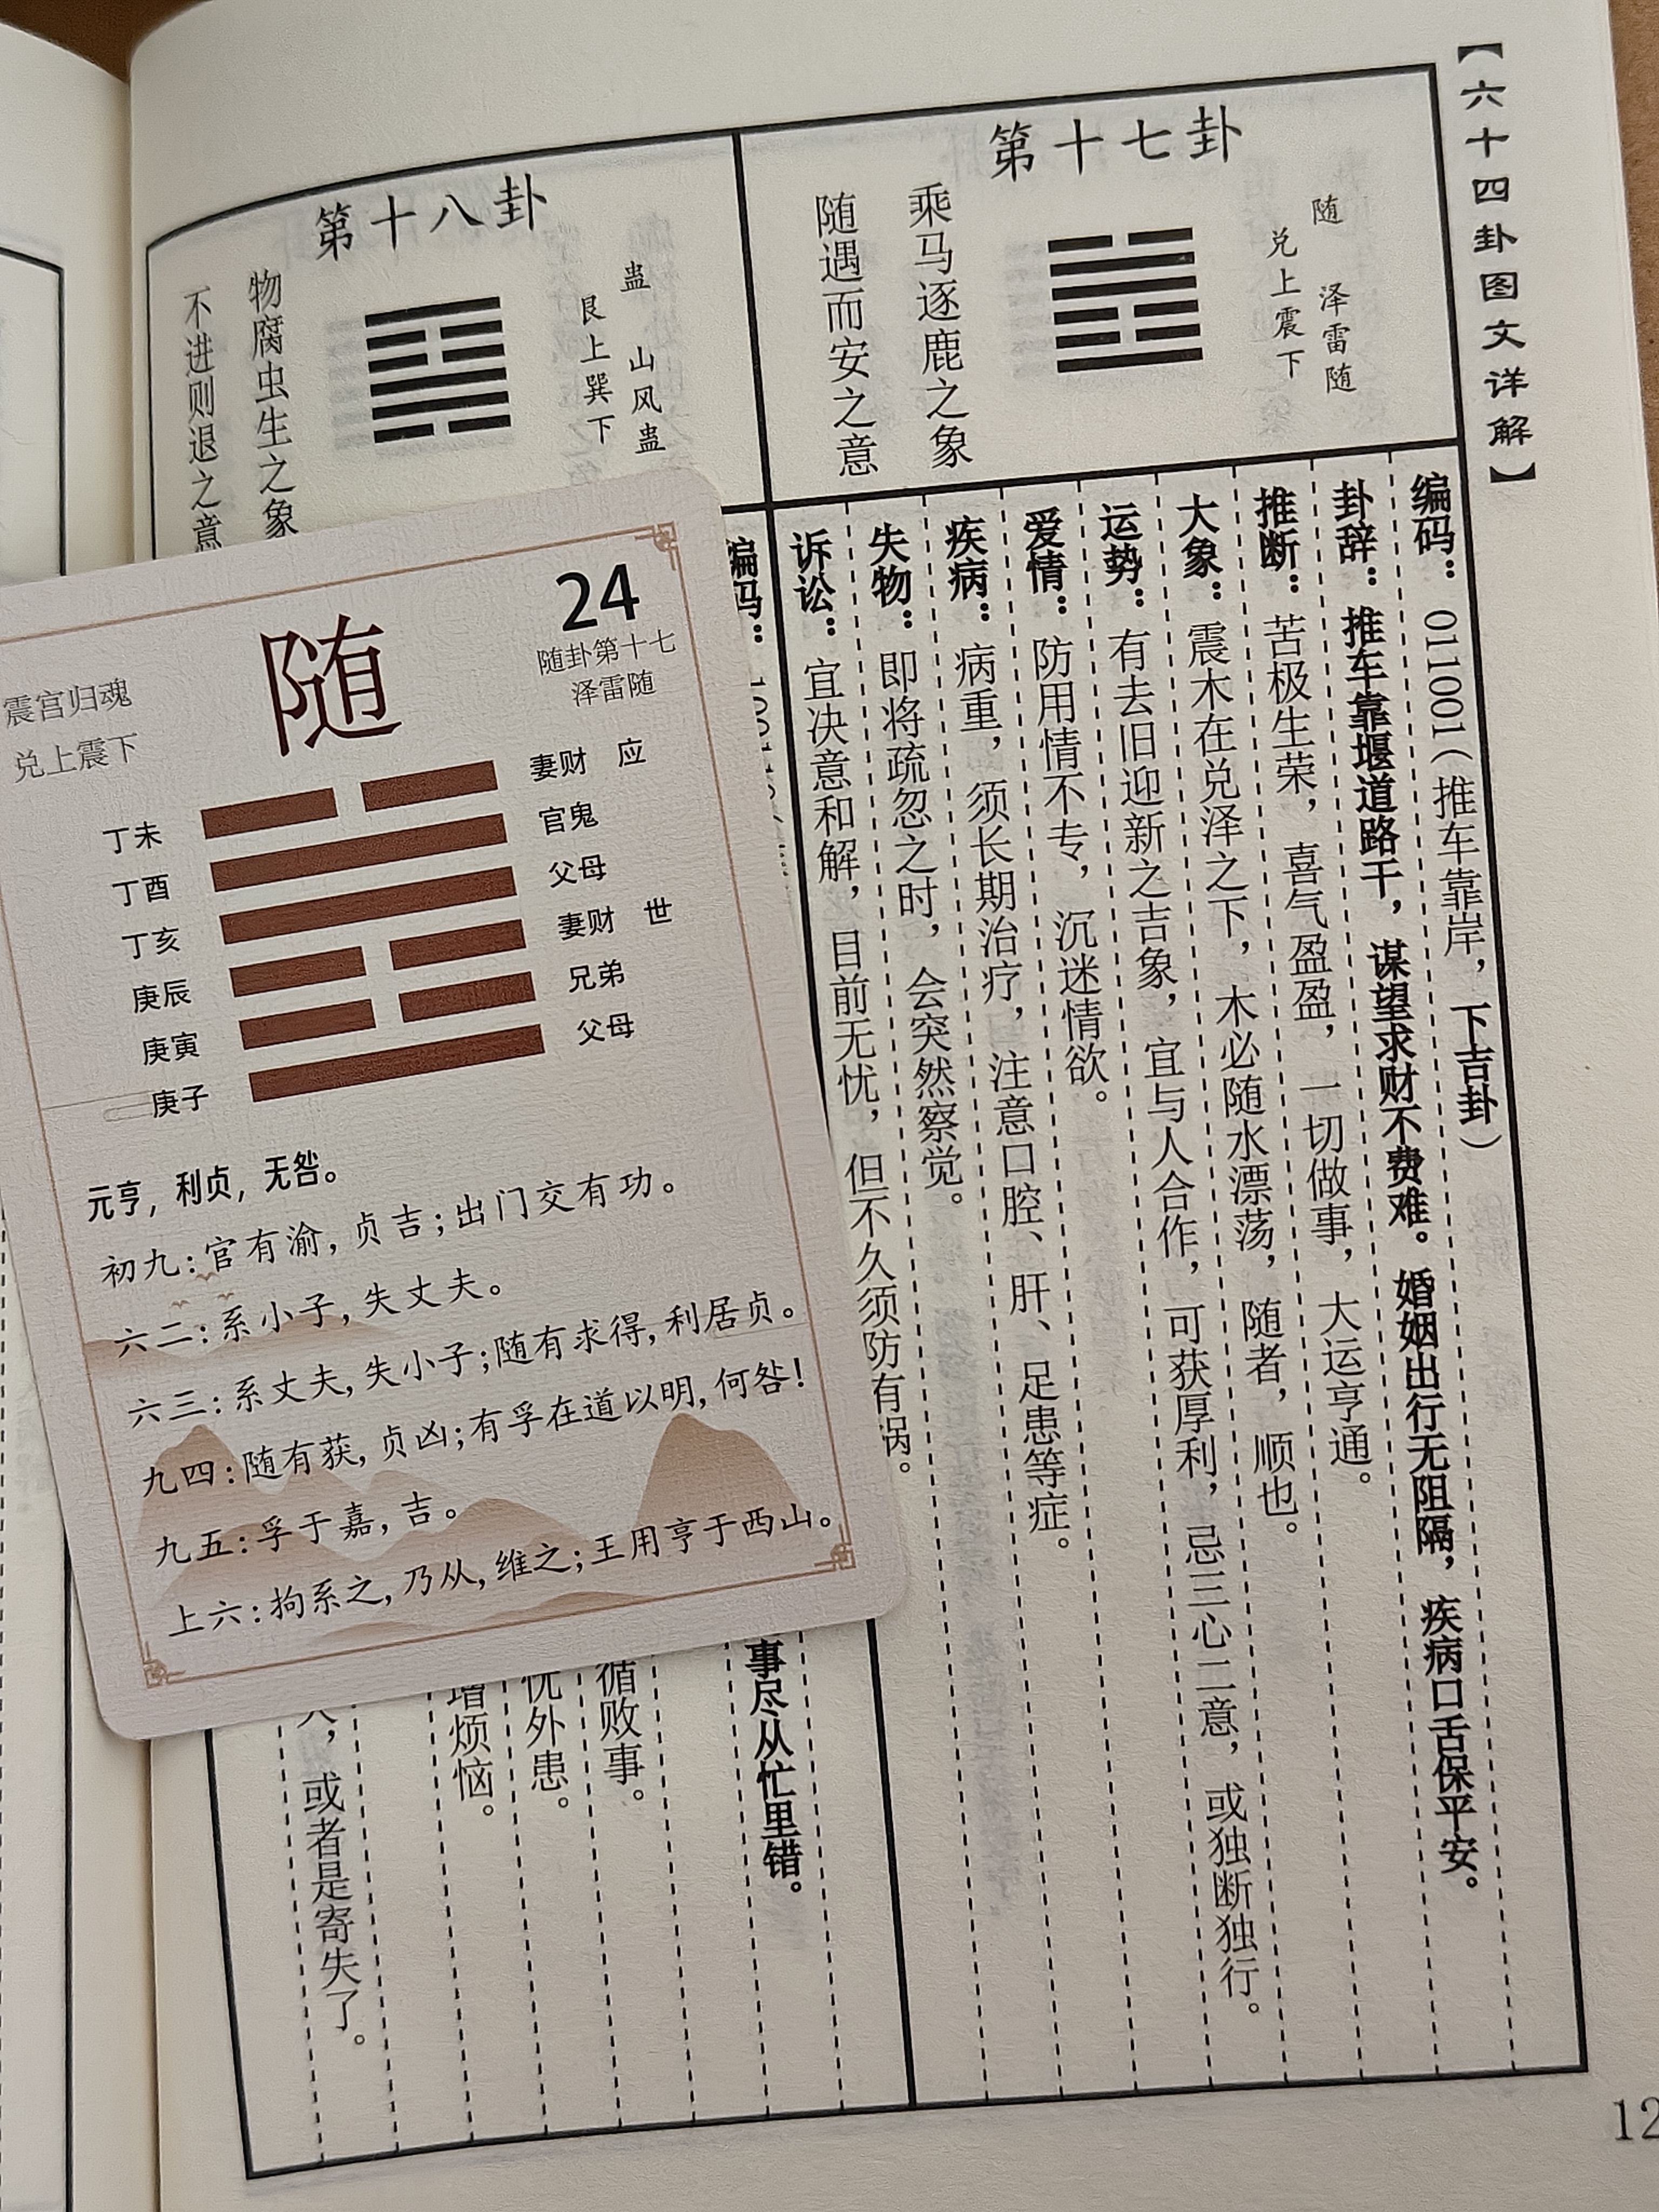 【六十四卦图文详解】
第十七卦
随 泽雷随
兑上震下
乘马逐鹿之象
随遇而安之意
编码：011001（推车靠岸，下吉卦）
卦辞：推车靠堰道路干，谋望求财不费难。婚姻出行无阻隔，疾病口舌保平安。
推断：苦极生荣，喜气盈盈，一切做事，大运亨通。
大象：震木在兑泽之下，木必随水漂荡，随者，顺也。
运势：有去旧迎新之吉象，宜与人合作，可获厚利，忌三心二意，或独断独行。
爱情：防用情不专，沉迷情欲。
疾病：病重，须长期治疗，注意口腔、肝、足患等症。
失物：即将疏忽之时，会突然察觉。
诉讼：宜决意和解，目前无忧，但不久须防有祸。
第十八卦
蛊 山风蛊
艮上巽下
物腐虫生之象
不进则退之意
编码：
事尽从忙里错。
循败事。
忧外患。
增烦恼。
，或者是寄失了。
12
24
随
随卦第十七
泽雷随
震宫归魂
兑上震下
丁未 妻财 应
丁酉 官鬼
丁亥 父母
庚辰 妻财 世
庚寅 兄弟
庚子 父母
元亨，利贞，无咎。
初九：官有渝，贞吉；出门交有功。
六二：系小子，失丈夫。
六三：系丈夫，失小子；随有求得，利居贞。
九四：随有获，贞凶；有孚在道以明，何咎！
九五：孚于嘉，吉。
上六：拘系之，乃从，维之；王用亨于西山。